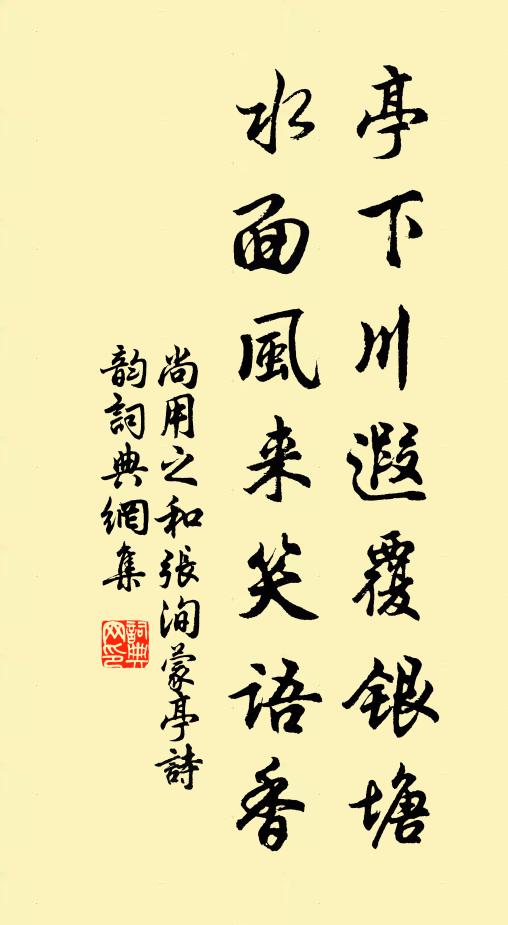 亭下川遐覆銀塘
水面風来笑語香
尚用之和張洵蒙亭詩
韵詞典網集
詞典网印